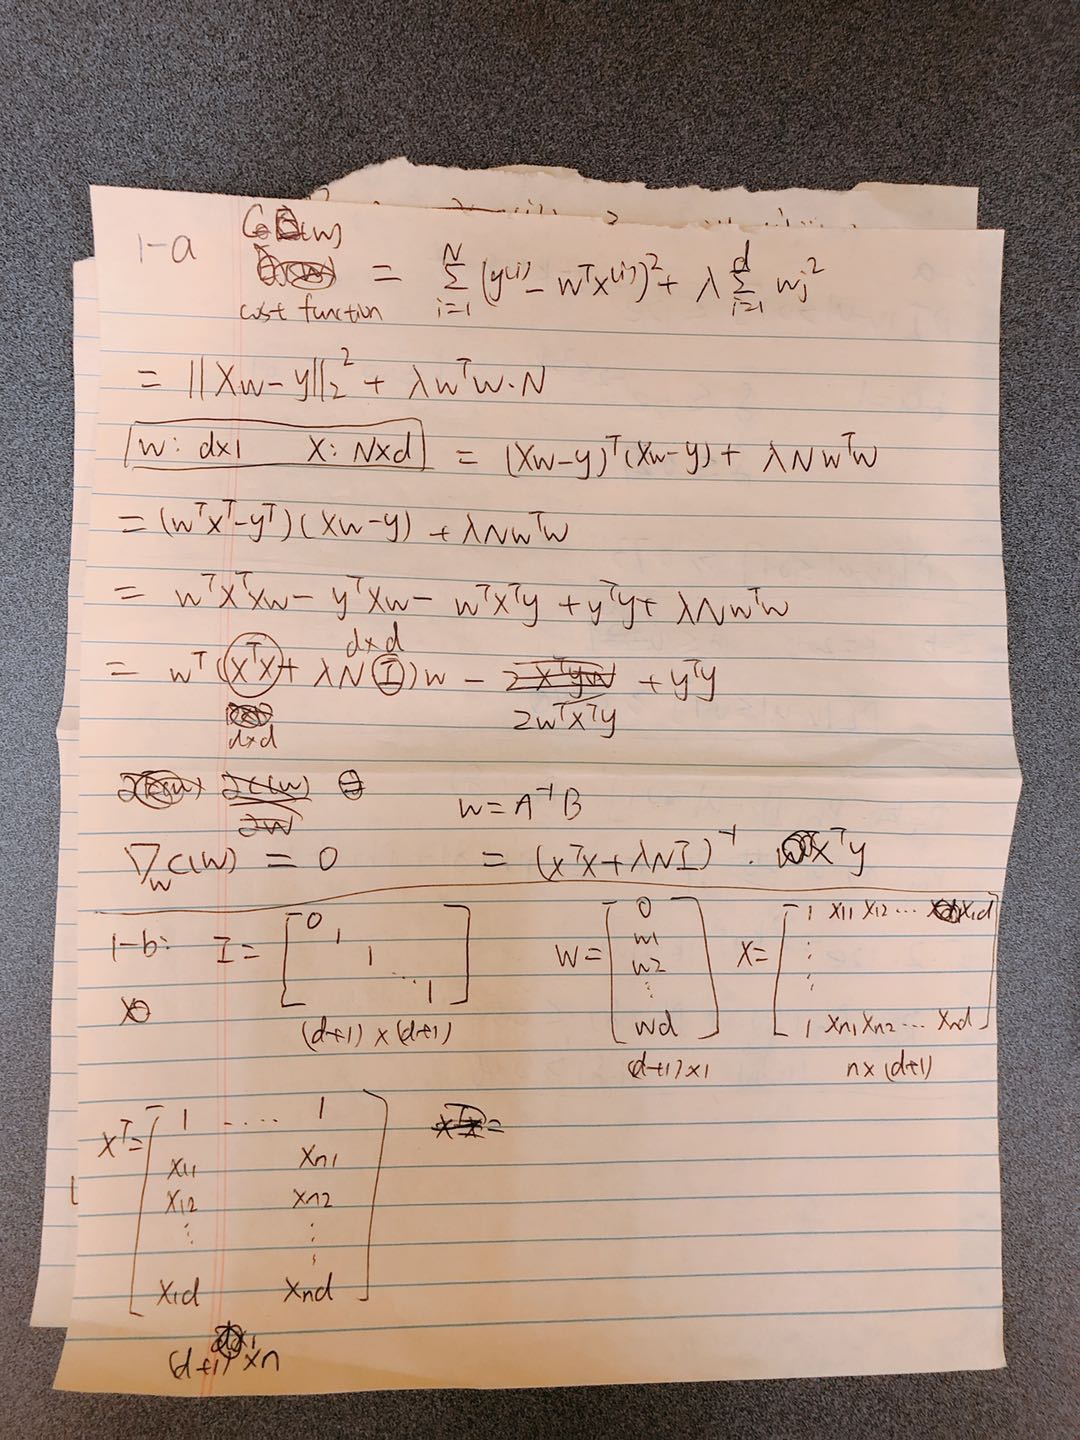 1-a C(w) = Σ_{i=1}^{N} (y^{(i)} - w^T x^{(i)})^2 + λ Σ_{i=1}^{d} wj^2
cost function
= ||Xw-y||_2^2 + λw^Tw·N
w: dx1 X: Nxd = (Xw-y)^T(Xw-y) + λNw^Tw
= (w^Tx^T-y^T)(Xw-y) + λNw^Tw
= w^Tx^Txw - y^TXw - w^Tx^Ty + y^Ty + λNw^Tw
dxd
= w^T(x^Tx + λN I)w - 2x^Tyw + y^Ty
dxd 2w^Tx^Ty
∂C(w)
∂w
w = A^{-1}B
∇_w C(w) = 0 = (x^Tx + λNI)^{-1} · x^Ty
1-b: I = [0 1 1 ⋱ 1] W = [0 w1 w2 ⋮ wd] X = [1 x11 x12 ... x1d ⋮ 1 xn1 xn2 ... xnd]
(d+1) x (d+1) (d+1)x1 nx(d+1)
x^T = [1 .... 1 x^Tx =
x11 xn1
x12 xn2
⋮ ⋮
x1d xnd]
(d+1) xn